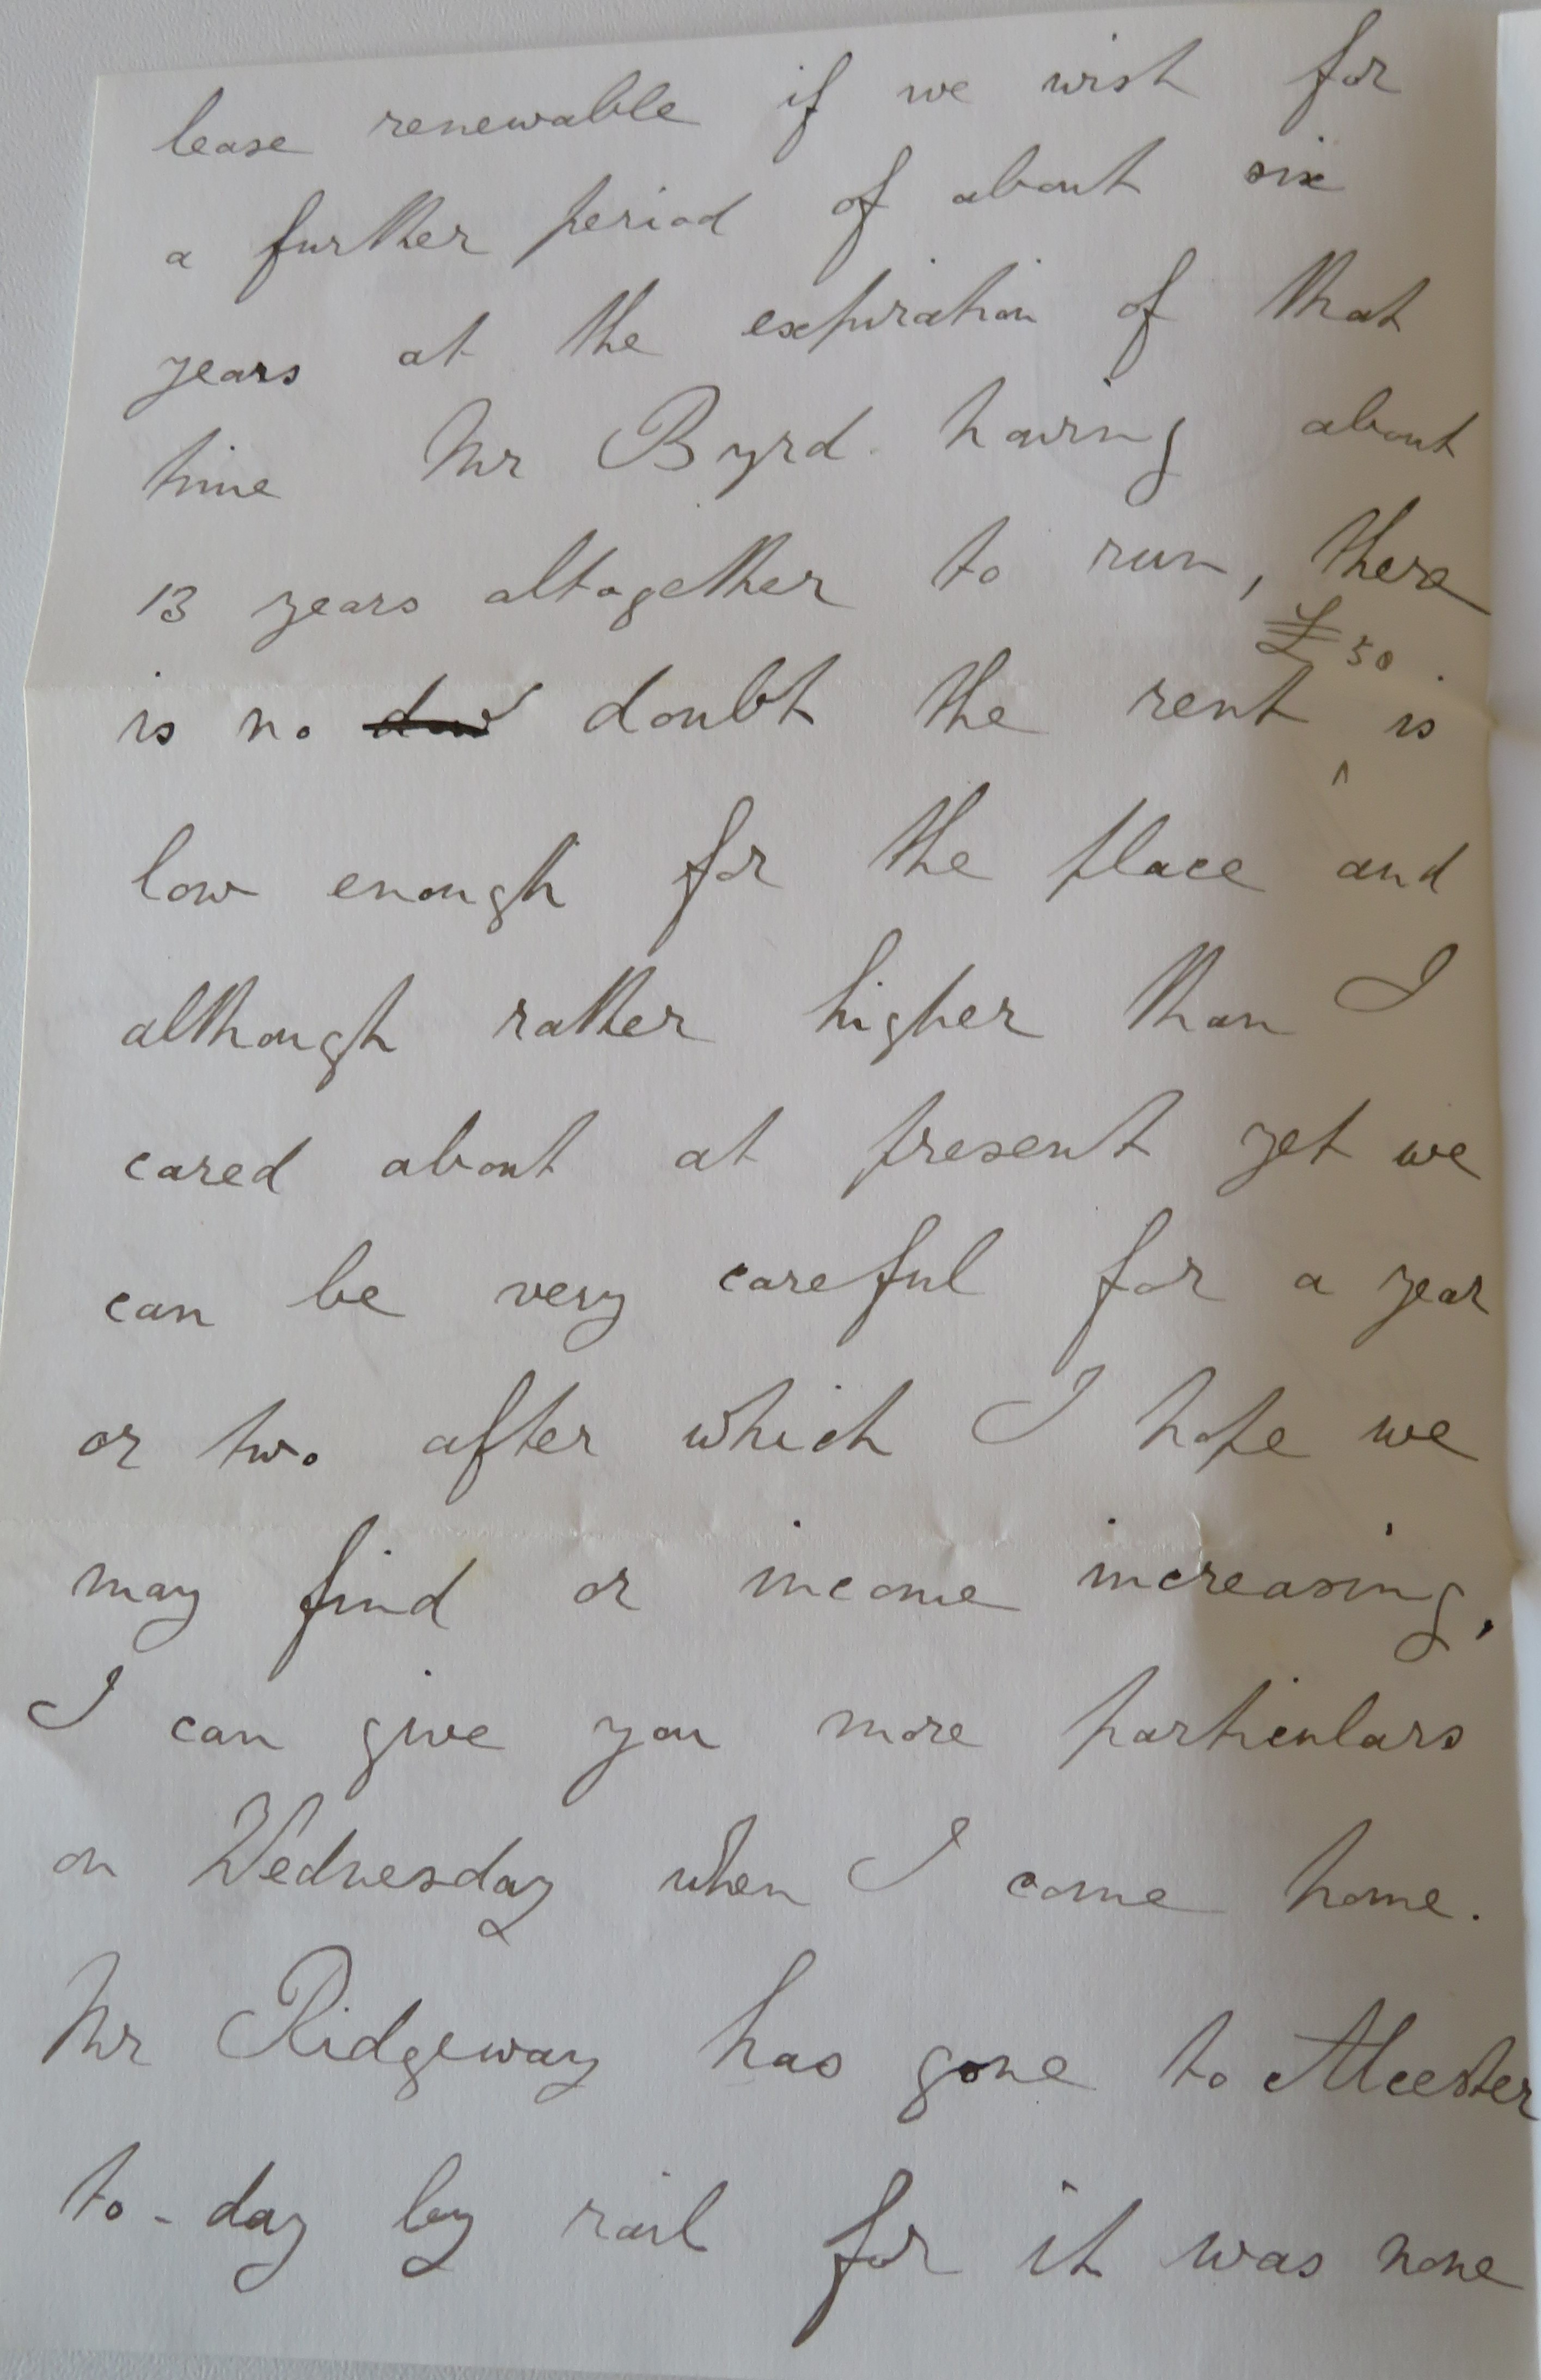 lease renewable if we wish for
a further period of about six
years at the expiration of that
time Mr Byrd. having about
13 years altogether to run, there
£50
is no doubt the rent ^ is
low enough for the place and
although rather higher than I
cared about at present yet we
can be very careful for a year
or two after which I hope we
may find or income increasing,
I can give you more particulars
on Wednesday when I come home.
Mr Ridgeway has gone to Alcester
to-day by rail for it was none